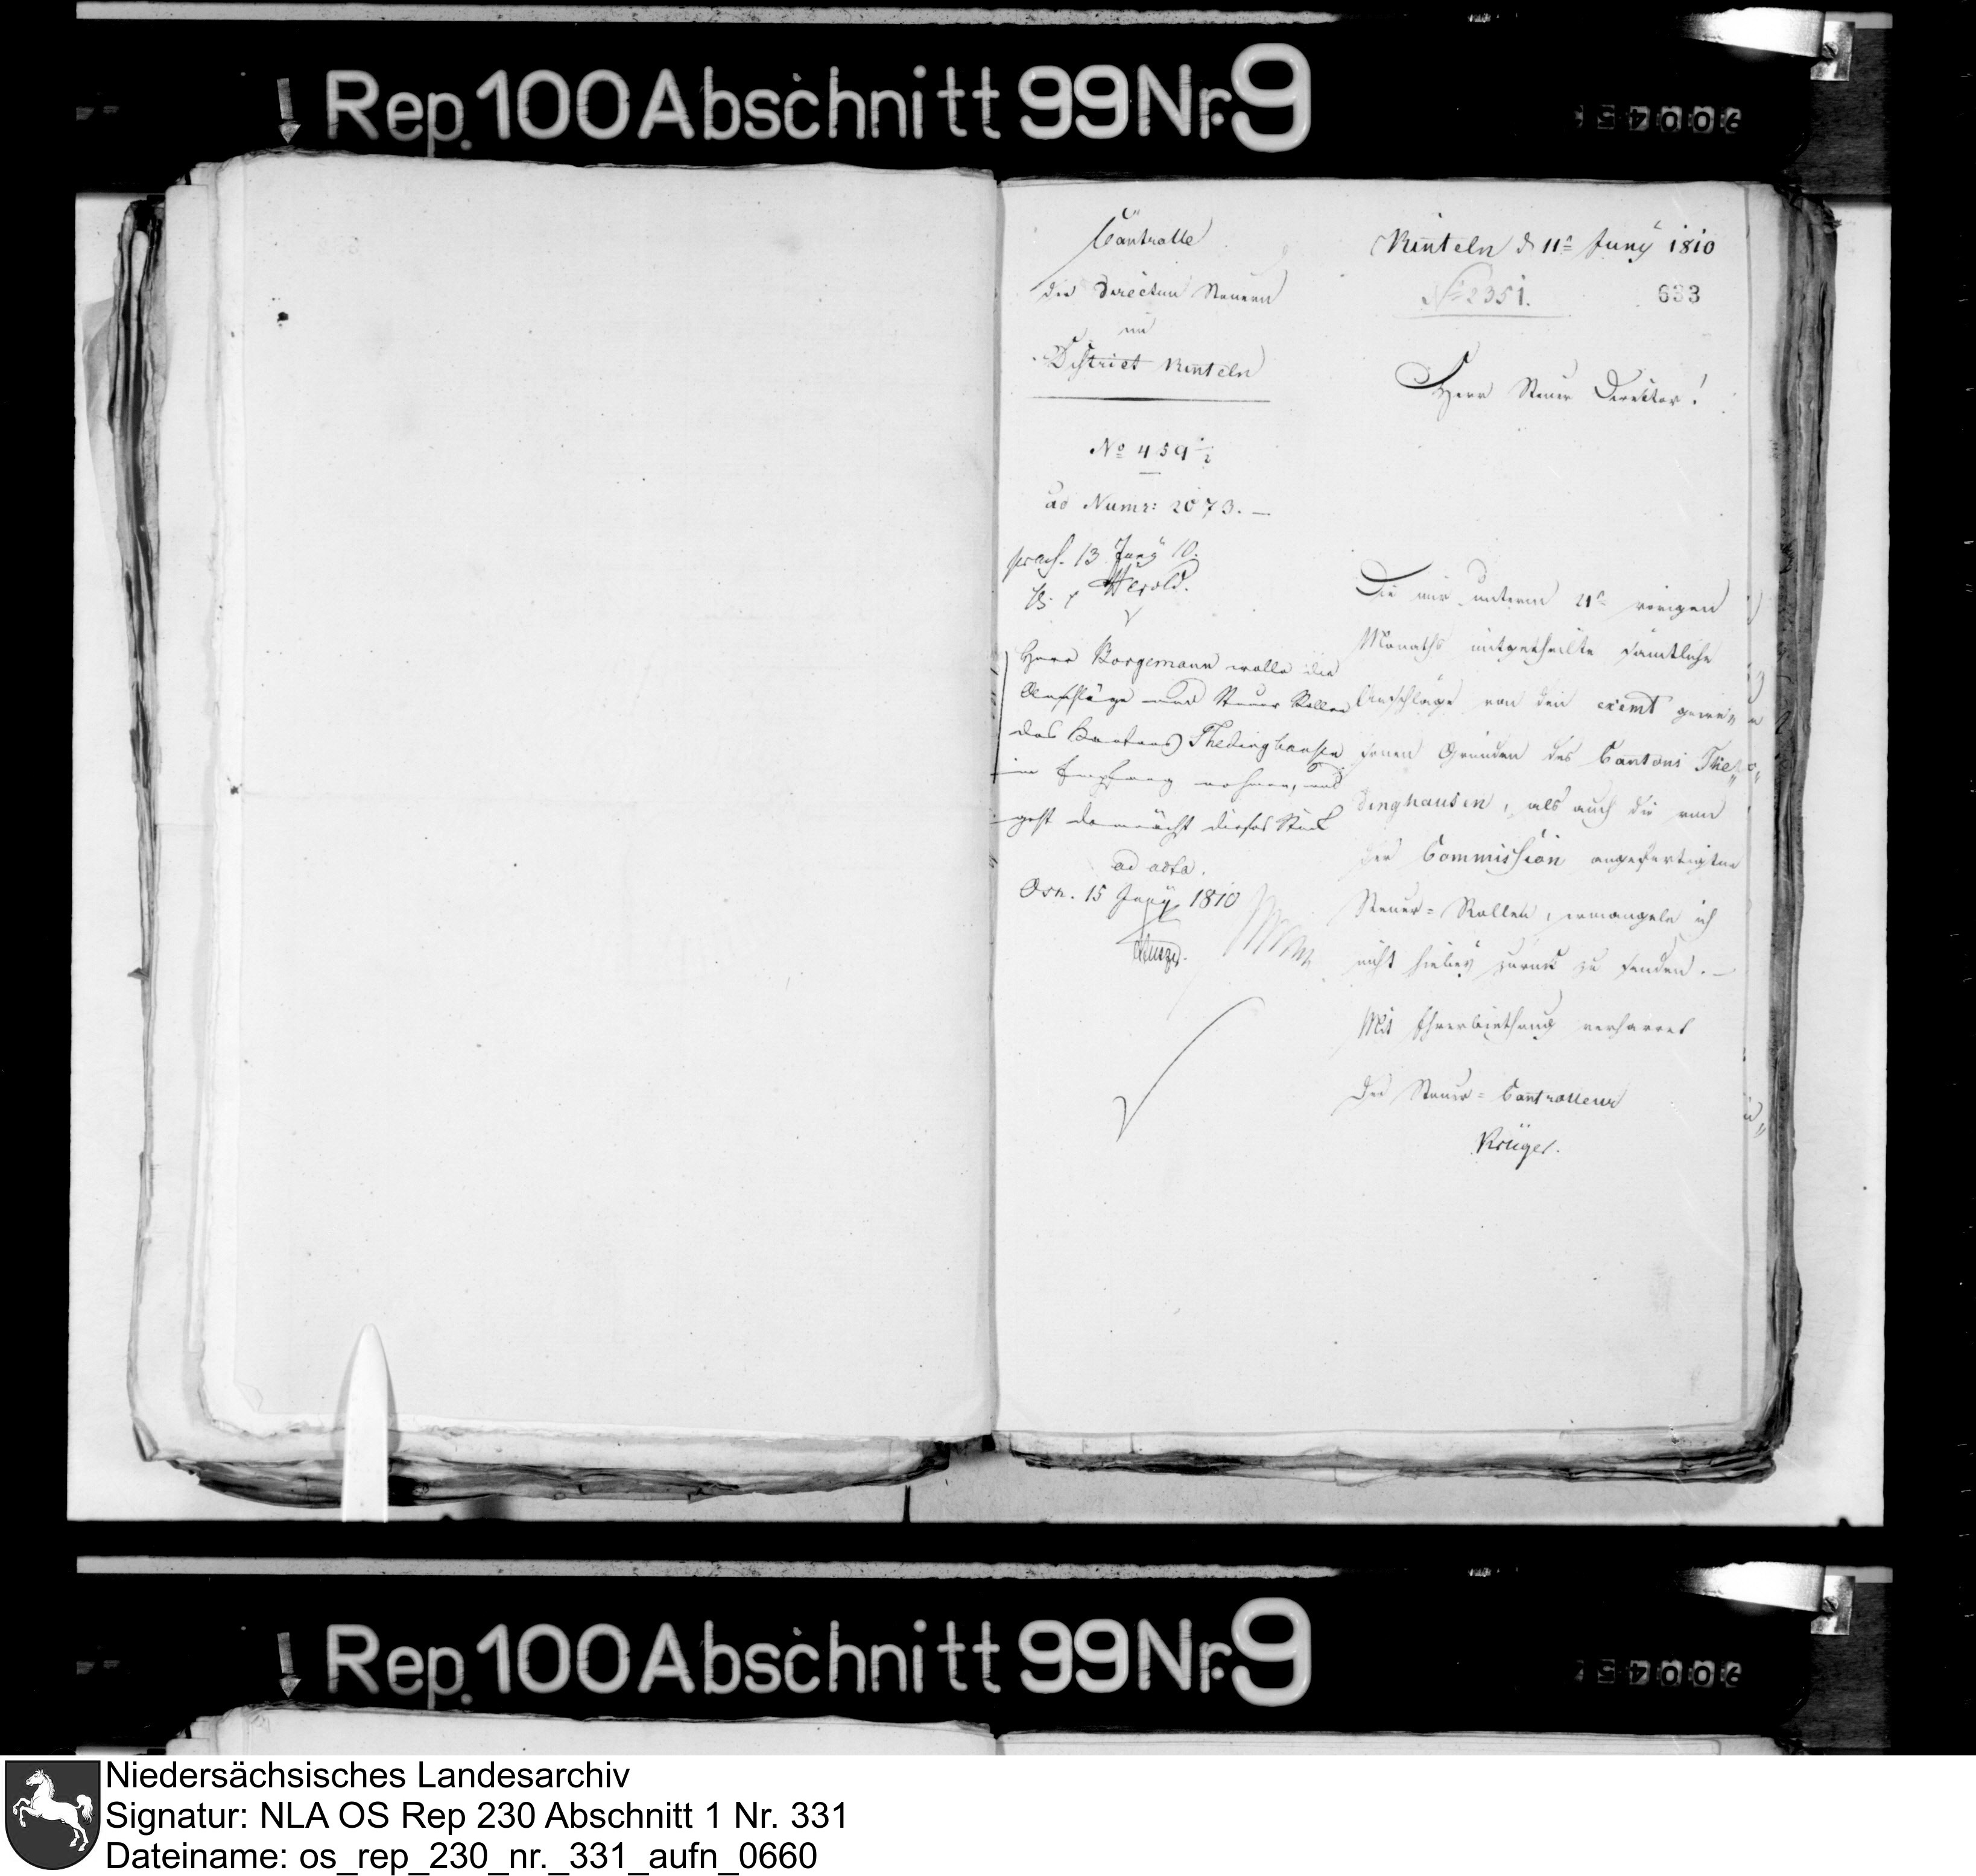 Rep. 100 Abschnitt 99 Nr. 9
Controlle
der directen Steuern
im
District Rinteln
No 459 1/2
ad Numr: 2073. —
praes. 13 Juny 10.
Herold.
Herr Borgemann wolle die
Anschläge und Steuer Rollen
des Cantons Thedinghausen
in Empfang nehmen, und
geht demnächst dieses Stück
ad acta.
Osn. 15 Juny 1810
Rinteln d 11n Juny 1810
No 2351.
633
Herr Steuer Director!
Die mir unterm 21n vorigen
Monaths mitgetheilte sämtliche
Anschläge von den exemt gewe„
senen Gründen des Cantons The„
dinghausen, als auch die von
der Commission angefertigten
Steuer=Rollen, ermangele ich
nicht hiebey zurück zu senden. —
Mit Ehrerbiethung verharret
Der Steuer=Controlleur
Krüger.
Rep. 100 Abschnitt 99 Nr. 9
Niedersächsisches Landesarchiv
Signatur: NLA OS Rep 230 Abschnitt 1 Nr. 331
Dateiname: os_rep_230_nr._331_aufn_0660